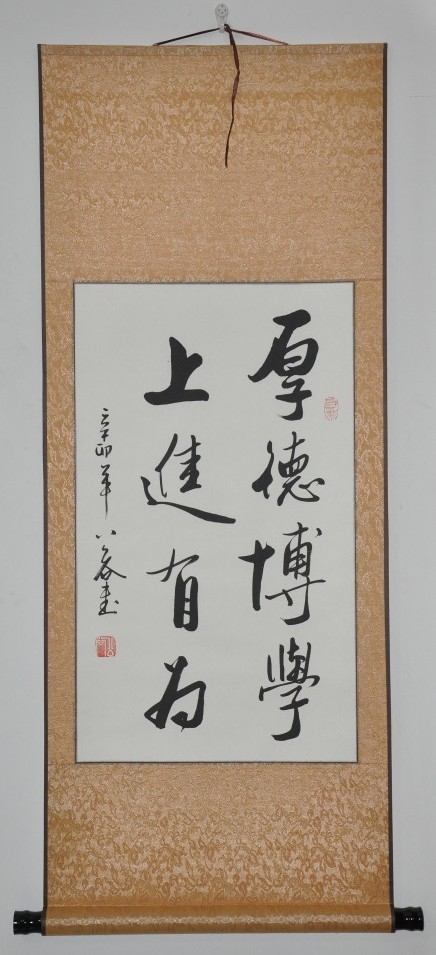 厚德博學
上進有為
辛卯年八谷書